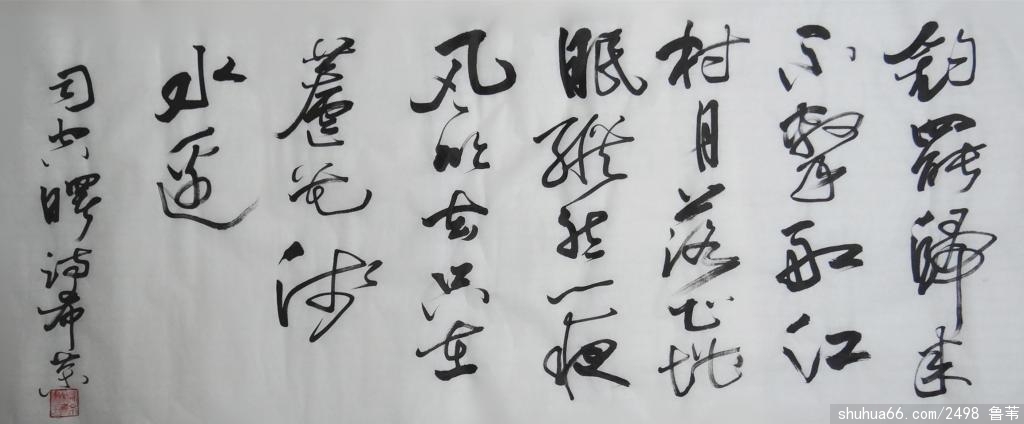 釣罷歸来
不繫船江
村月落正堪
眠縱然一夜
风吹去只在
蘆花浅
水邊
司空曙诗希
shuhua66.com/2498 鲁苇